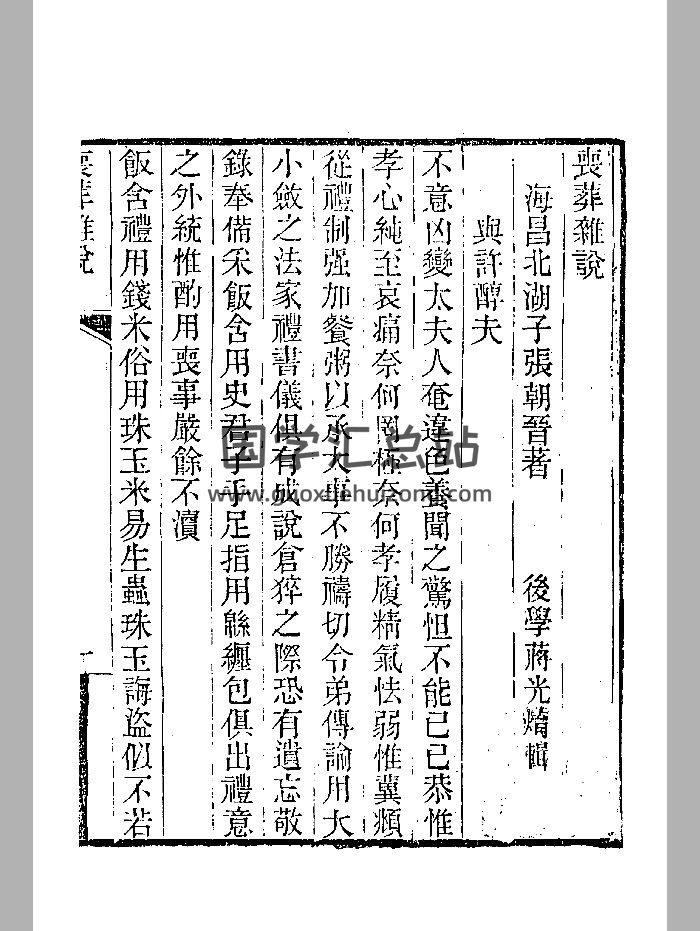 喪葬雜說
海昌北湖子張朝晉著 後學蔣光焴輯
與許醇夫
不意凶變太夫人奄違色養聞之驚怛不能已已恭惟
孝心純至哀痛奈何罔極奈何孝履精氣怯弱惟冀頫
從禮制强加餐粥以承大事不勝禱切令弟傳諭用大
小斂之法家禮書儀俱有成說倉猝之際恐有遺忘敬
錄奉備采飯含用史君子手足指用緜纏包俱出禮意
之外統惟酌用喪事嚴餘不瀆
飯含禮用錢米俗用珠玉米易生蟲珠玉誨盜似不若
喪葬雜說
一
国学汇总站
www.guoxuehuizong.com